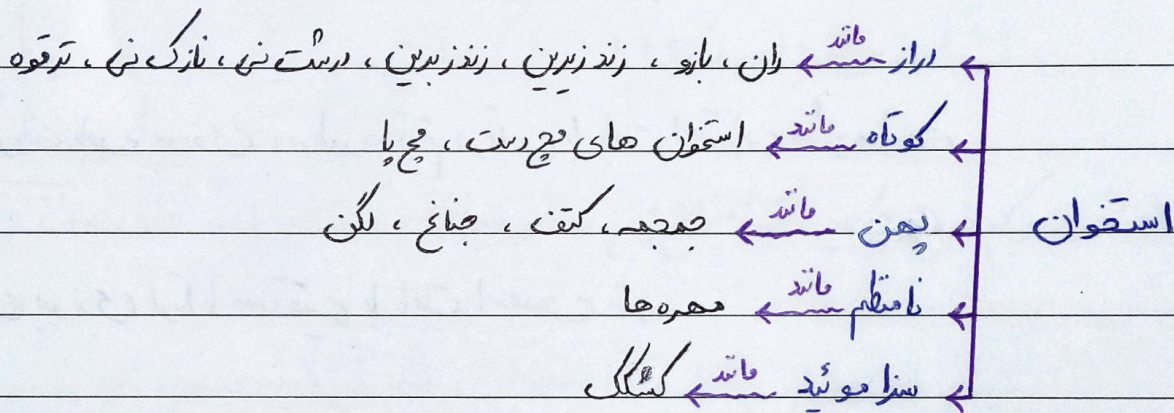 دراز مانند ران، بازو، زند زیرین، زند زبرین، درشت نی، نازک نی، ترقوه
کوتاه مانند استخوان های مچ دست، مچ پا
استخوان
پهن مانند جمجمه، کتف، جناغ، لگن
نامنظم مانند مهره ها
سزاموئید مانند کشکک